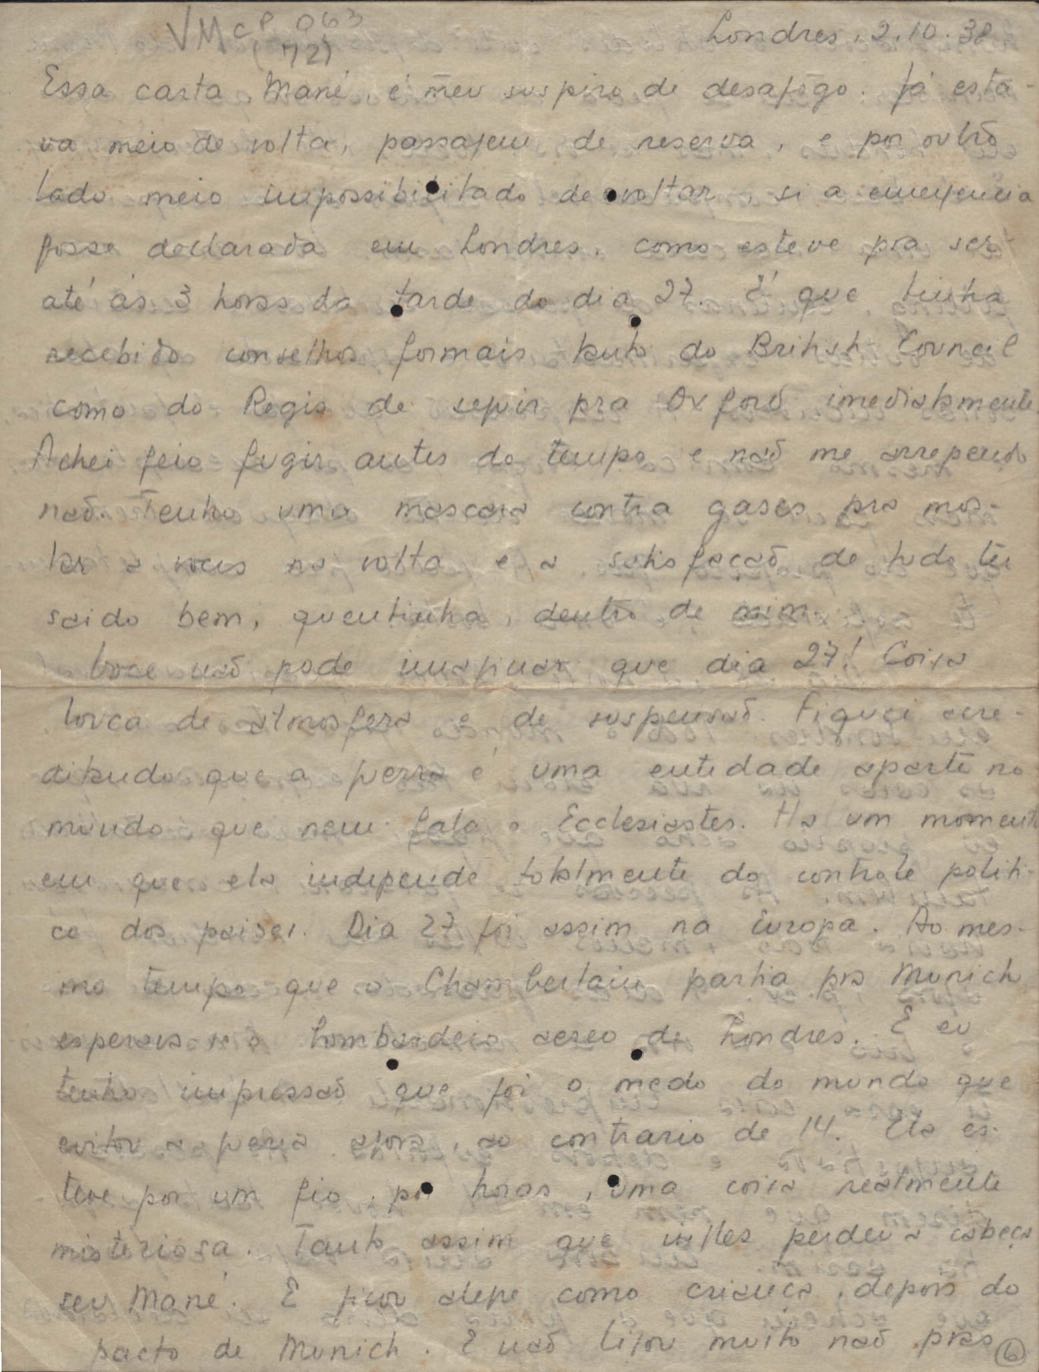 VMcP 063
(72)
Londres, 2.10.38
Essa carta, Mané, é meu suspiro de desafôgo. Já esta-
va meio de volta, passajem de reserva, e por outro
lado meio impossibilitado de voltar, si a emerjencia
fosse declarada em Londres, como esteve pra ser
até ás 3 horas da tarde do dia 27. É que tinha
recebido conselhos formais tanto do British Council
como do Regis de seguir pra Oxford imediatamente.
Achei feio fugir antes do tempo e naõ me arrependo
naõ. Tenho uma mascara contra gases pra mos-
trar a voces na volta e a satisfaçaõ de tudo ter
saido bem, quentinha, dentro de mim.
Voce naõ pode imajinar que dia 27! Coisa
louca de atmosfera e de suspensaõ. Fiquei acre-
ditando que a guerra é uma entidade aparte no
mundo que nem fala o Ecclesiastes. Ha um momento
em que ela independe totalmente do controle politi-
co dos paises. Dia 27 foi assim na Europa. Ao mes-
mo tempo que o Chamberlain partia pra Munich
esperava-se o bombardeio aereo de Londres. E eu
tenho impressaõ que foi o medo do mundo que
evitou a guerra agora, ao contrario de 14. Ela es-
teve por um fio, por horas, uma coisa realmente
misteriosa. Tanto assim que perdeu a cabeça
seu Mané. E ficou alegre como criança, depois do
pacto de Munich. E naõ ligou muito naõ pras
6